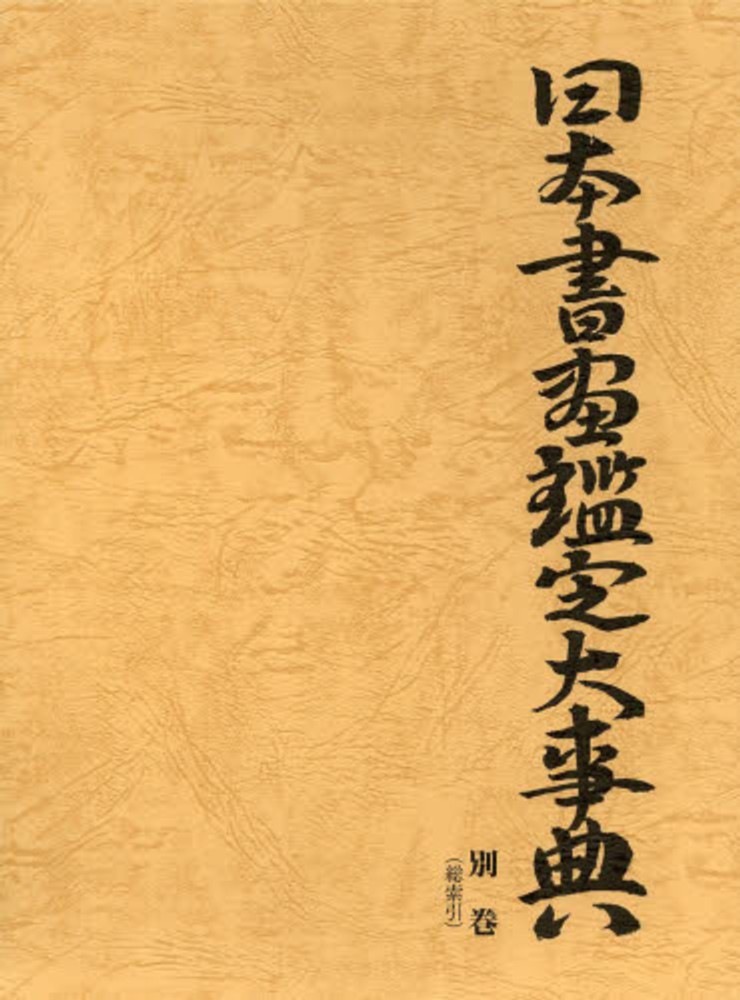 日本書画鑑定大事典
別巻
（総索引）